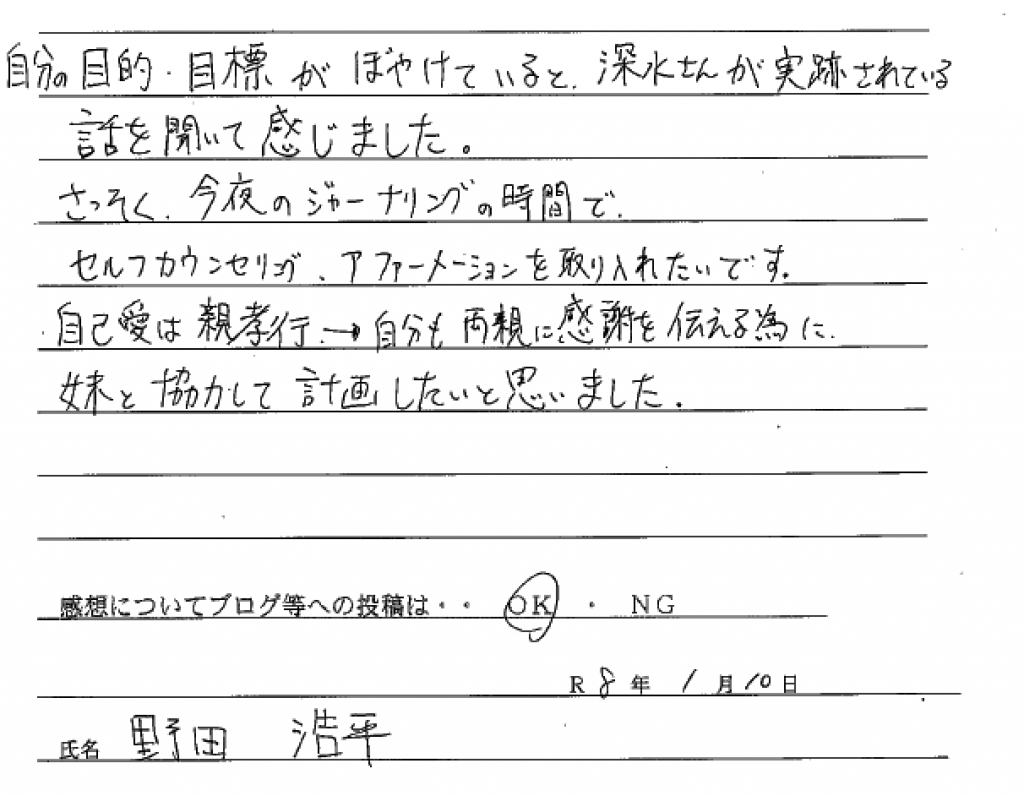 自分の目的・目標がぼやけていると、深水さんが実跡されている
話を聞いて感じました。
さっそく、今夜のジャーナリングの時間で、
セルフカウンセリング、アファーメーションを取り入れたいです。
自己愛は親孝行→自分も両親に感謝を伝える為に、
妹と協力して計画したいと思いました。
感想についてブログ等への投稿は・・ OK ・ NG
R 8 年 1 月 10 日
氏名 野田 浩平